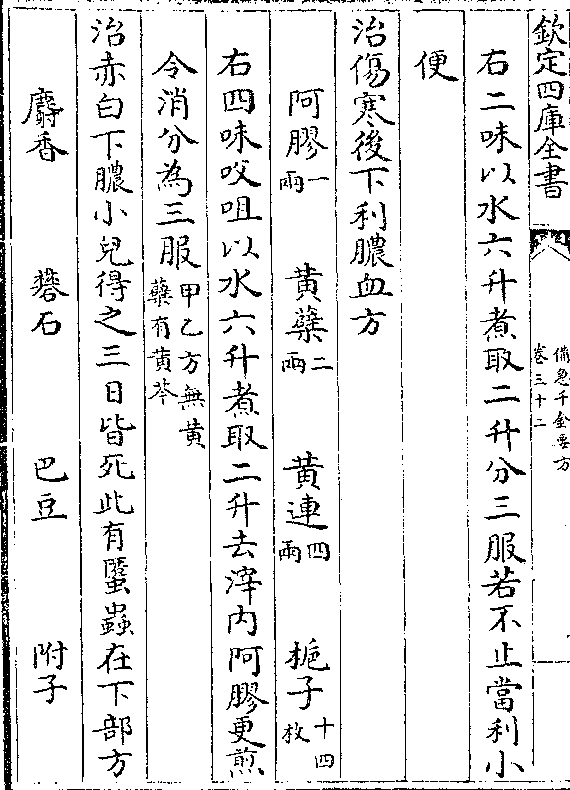 欽定四庫全書
備急千金要方
卷三十二
右二味以水六升煮取二升分三服若不止當利小
便
治傷寒後下利膿血方
阿膠一兩 黃蘗二兩 黃連四兩 梔子十四枚
右四味㕮咀以水六升煮取二升去滓內阿膠更煎
令消分為三服甲乙方無黃蘗有黃芩
治赤白下膿小兒得之三日皆死此有䘌蟲在下部方
麝香 礜石 巴豆 附子